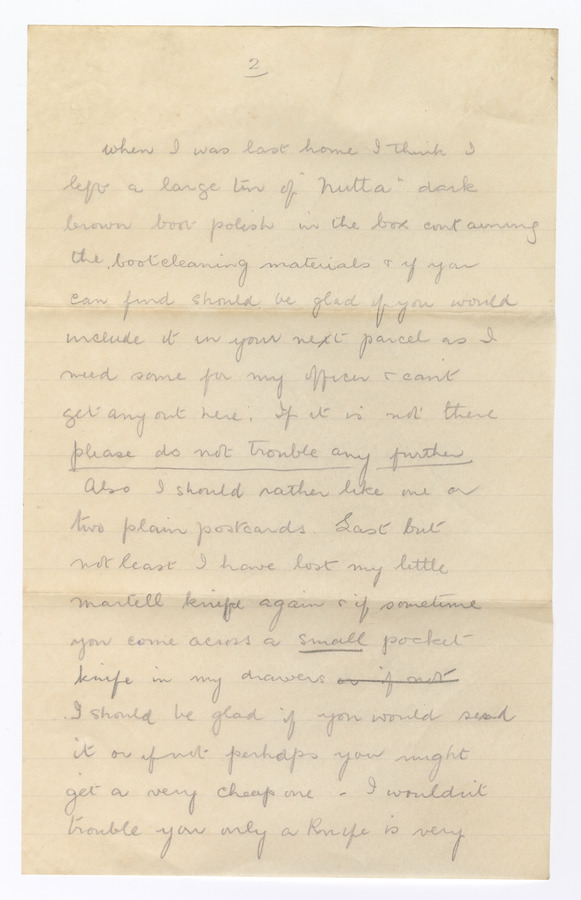 2
when I was last home I think I
left a large tin of "Nutta" dark
brown boot polish in the box containing
the bootcleaning materials & if you
can find should be glad if you would
include it in your next parcel as I
need some for my officer & can't
get any out here. If it is not there
please do not trouble any further
Also I should rather like one or
two plain postcards. Last but
not least I have lost my little
martell knife again & if sometime
you come across a small pocket
knife in my drawers or if not
I should be glad if you would send
it or if not perhaps you might
get a very cheap one - I wouldn't
trouble you only a knife is very